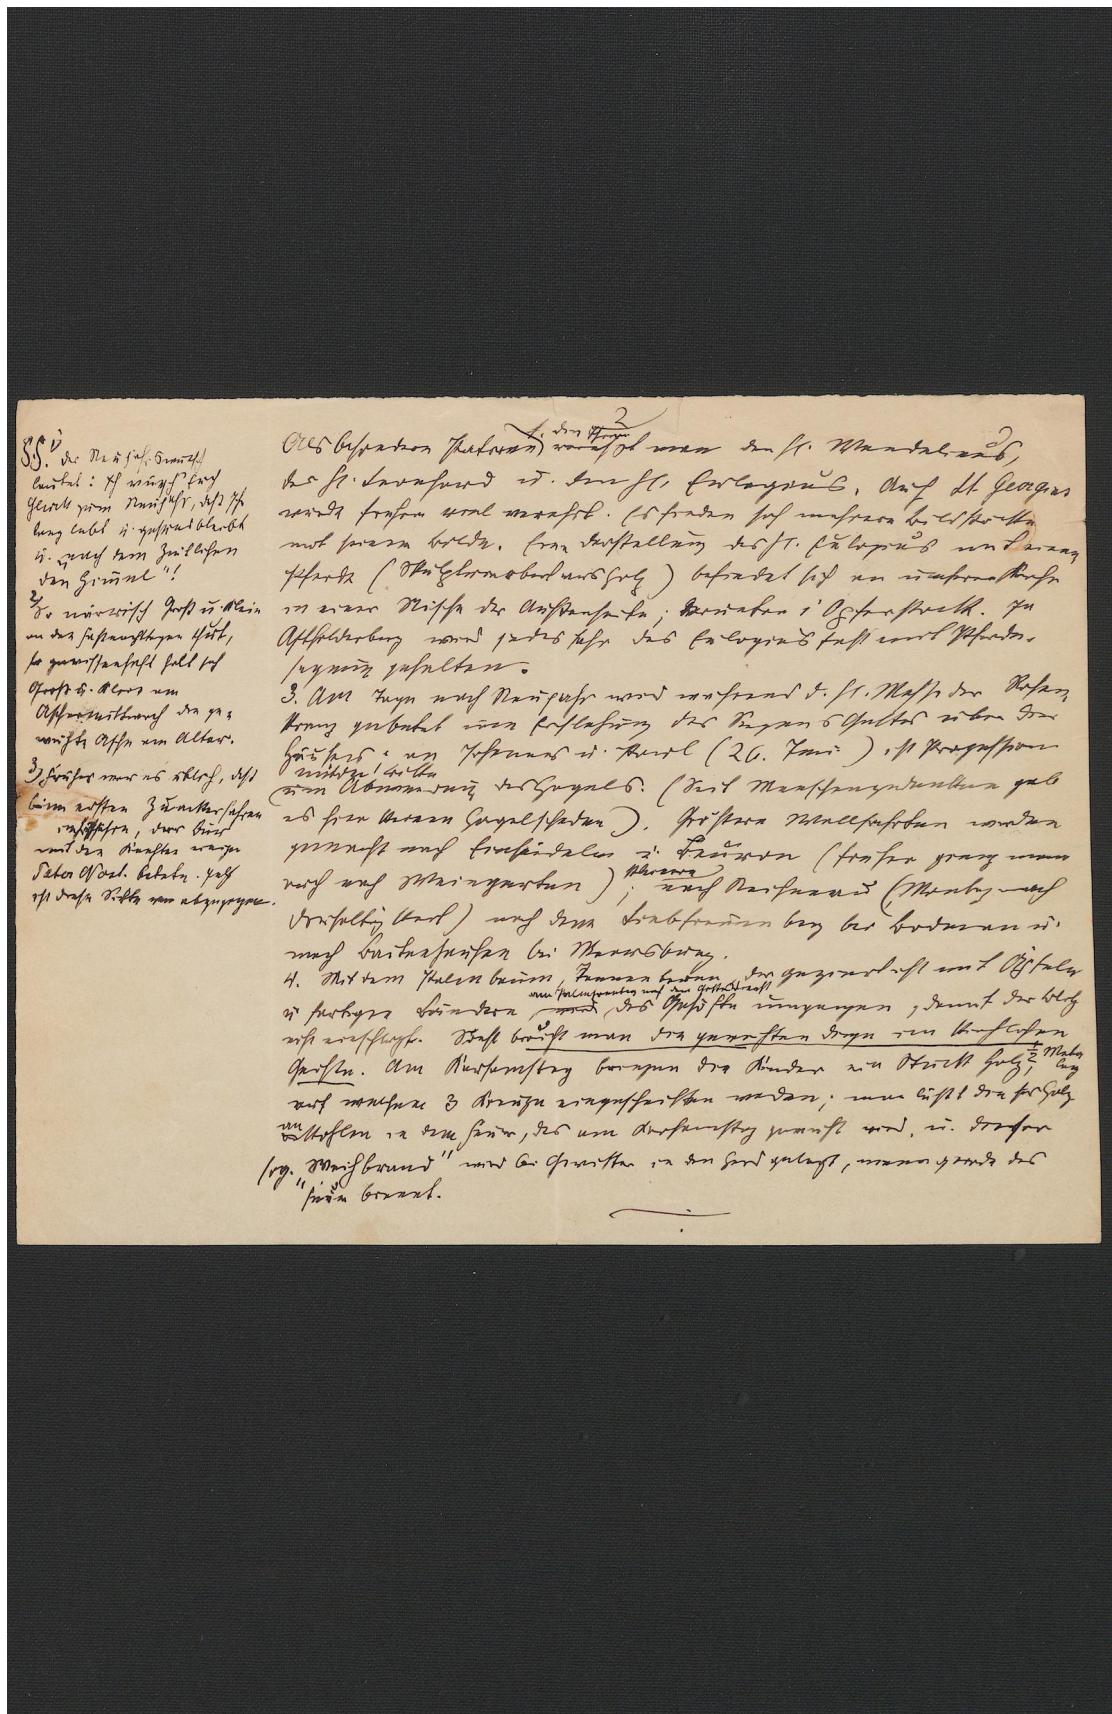 2
§§. 1) der Neujahrswunsch
lautet: Ich wünsch Euch
Glück zum Neujahr, daß Ihr
lang lebt u. gesund bleibt
u. "nach dem Zeitlichen
den Himmel"!
2) So närrisch Groß u. Klein
an den Fastnachttagen thut,
so gewissenhaft holt sich
Groß u. Klein am
Aschermittwoch die ge-
weihte Asche am Altar.
3) Früher war es üblich, daß
beim ersten Zuackerfahren
der Bur
mit den Knechten einige
Pater Nost. betete. Jetzt
ist diese Sitte abgegangen.
Als besondern Patron f. den verehrt man den hl. Wendelinus,
den hl. Leonhard u. den hl. Eulogius. Auch St Georgius
wurde früher viel verehrt. Es finden sich mehrere Bildstöcke
mit seinem Bilde. Eine Darstellung des hl. Eulogius mit einem
Pferde (Skulpturarbeit aus Holz) befindet sich an unserer Kirche
in einer Nische der Außenseite; darunter 1 Opferstock. In
Aftholderberg wird jedes Jahr das Eulogiusfest mit Pferde-
segnung gehalten.
3. Am Tage nach Neujahr wird während d. hl. Messe der Rosen-
kranz gebetet um Erflehung des Segens Gottes über die
Häuser; an Johannes u. Paul (26. Juni) ist Prozession
um Abwendung des Hagels. (Seit Menschengedenken gab
es hier keinen Hagelschaden). Größere Wallfahrten werden
gemacht nach Einsiedeln u. Beuron (früher ging man
auch nach Weingarten); kleinere nach Reichenau (Montag nach
Dreifaltigkeit) nach dem Liebfrauenberg bei Bodman u.
nach Baitenhausen bei Meersburg.
4. Mit dem Palmbaum, Tannenbaum, der geziert ist mit Äpfeln
am Palmsonntag nach dem Gottesdienst
u farbigen Bändern, wird das Gehöfte umgangen, damit der Blitz
nicht einschlage. Sonst braucht man die geweihten Dinge im kirchlichen
Geiste. Am Karsamstag bringen die Kinder ein Stück Holz, ½ Meter lang
auf welchem 3 Kreuze eingeschnitten werden; man läßt dieses Holz
ankohlen in dem Feuer, das am Karsamstag geweiht wird, u. dieser
sog. "Weihbrand" wird bei Gewitter in den Herd gelegt, wenn gerade das
Feuer brennt.